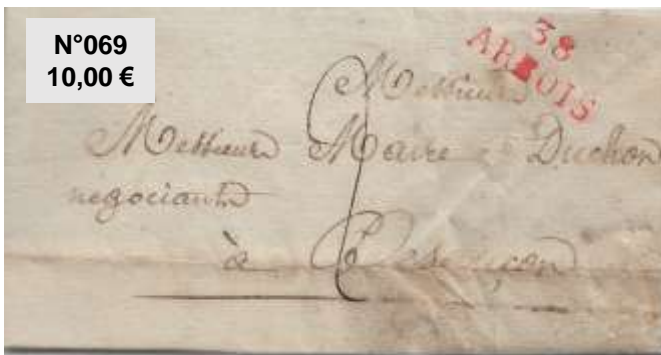 N°069
10,00 €
38
ARBOIS
Messieurs
Messieurs Maire & Duchon
negociants
à Besançon